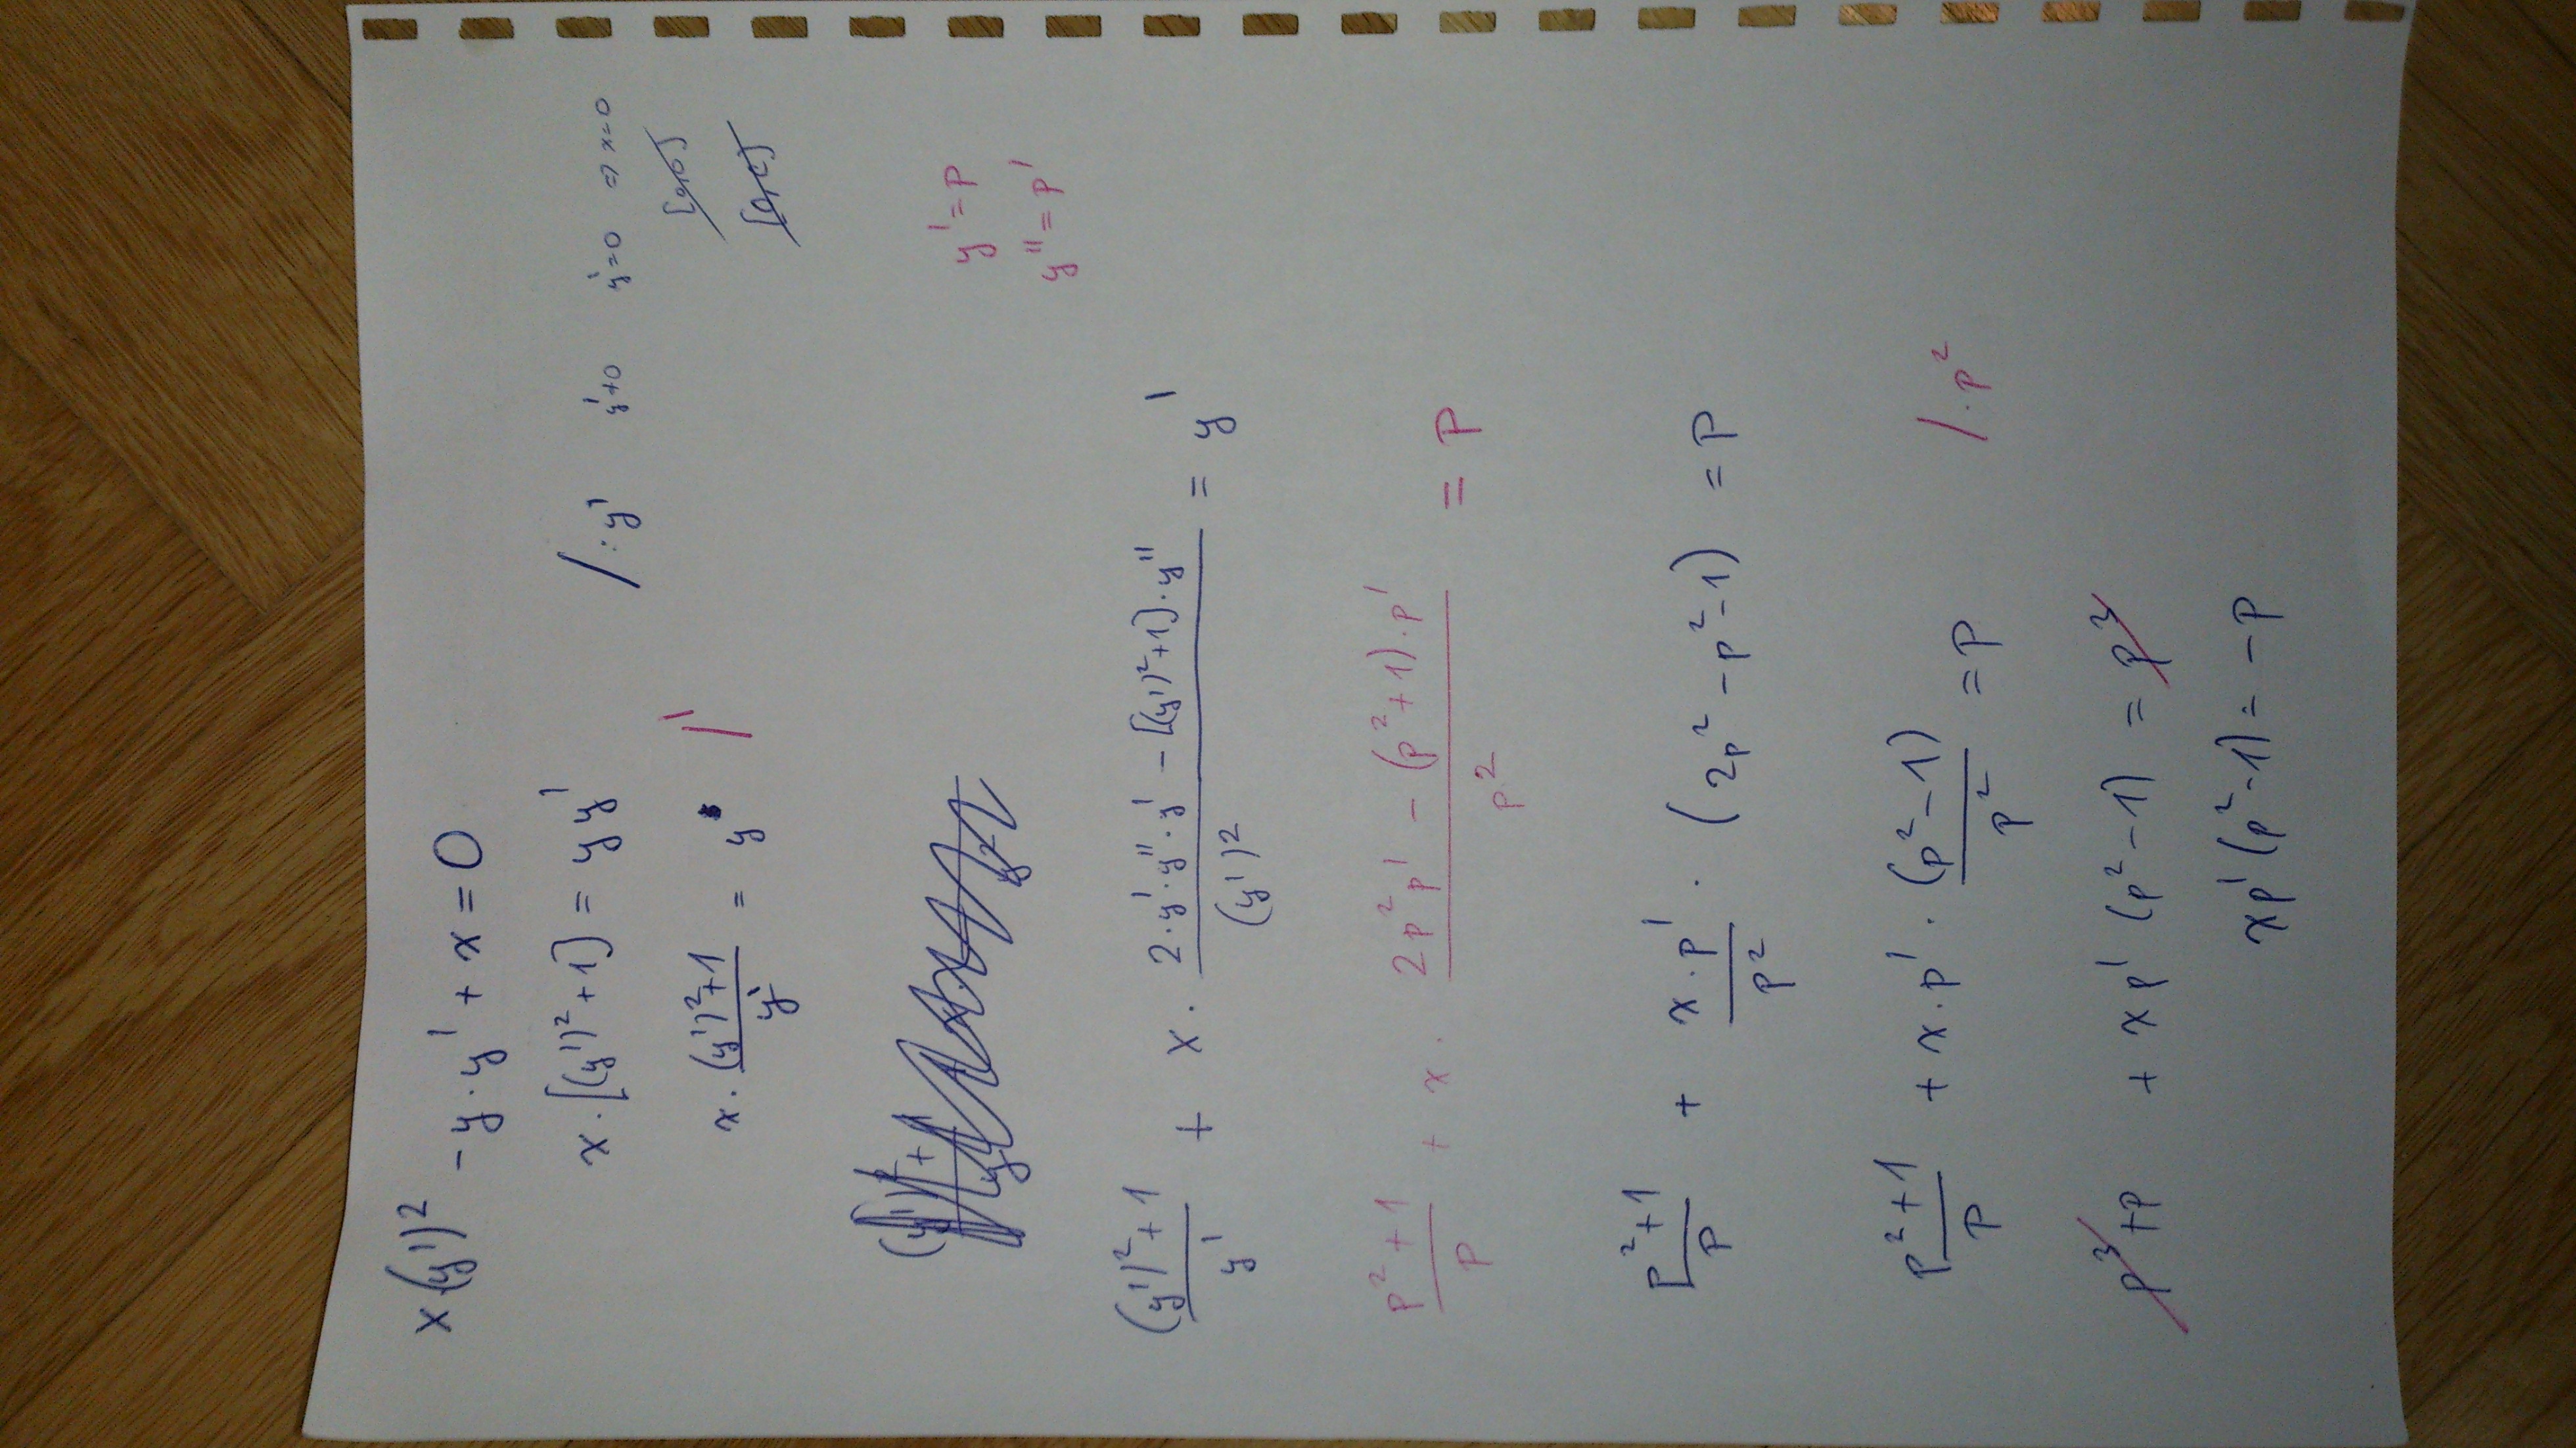 x·(y')² - y·y' + x = 0
x·[(y')² + 1] = y y' / : y' y' ≠ 0 y' = 0 ⇒ x = 0
[0,0]
x · ((y')² + 1)/y' = y /'
[0,c]
y' = p
y'' = p'
((y')² + 1)/y' + x · (2·y'·y''·y' - [(y')² + 1]·y'')/(y')² = y'
(p² + 1)/p + x · (2p²p' - (p² + 1)·p')/p² = p
(p² + 1)/p + (x·p')/p² · (2p² - p² - 1) = p
(p² + 1)/p + x·p' · (p² - 1)/p² = p / · p²
p³ + p + xp' (p² - 1) = p³
xp' (p² - 1) = - p